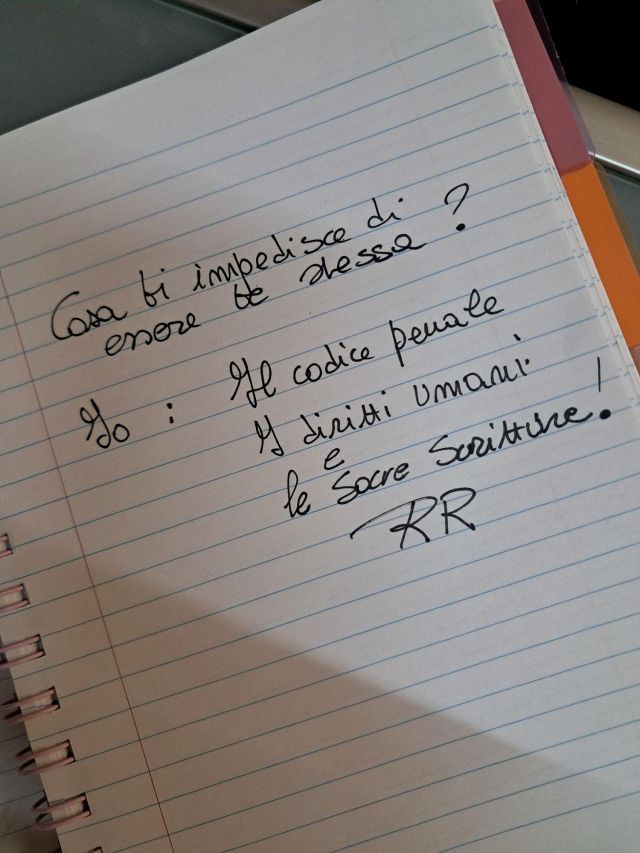 Cosa ti impedisce di
essere te stessa?
Io: Il codice penale
I diritti umani
e
le Sacre Scritture!
RR